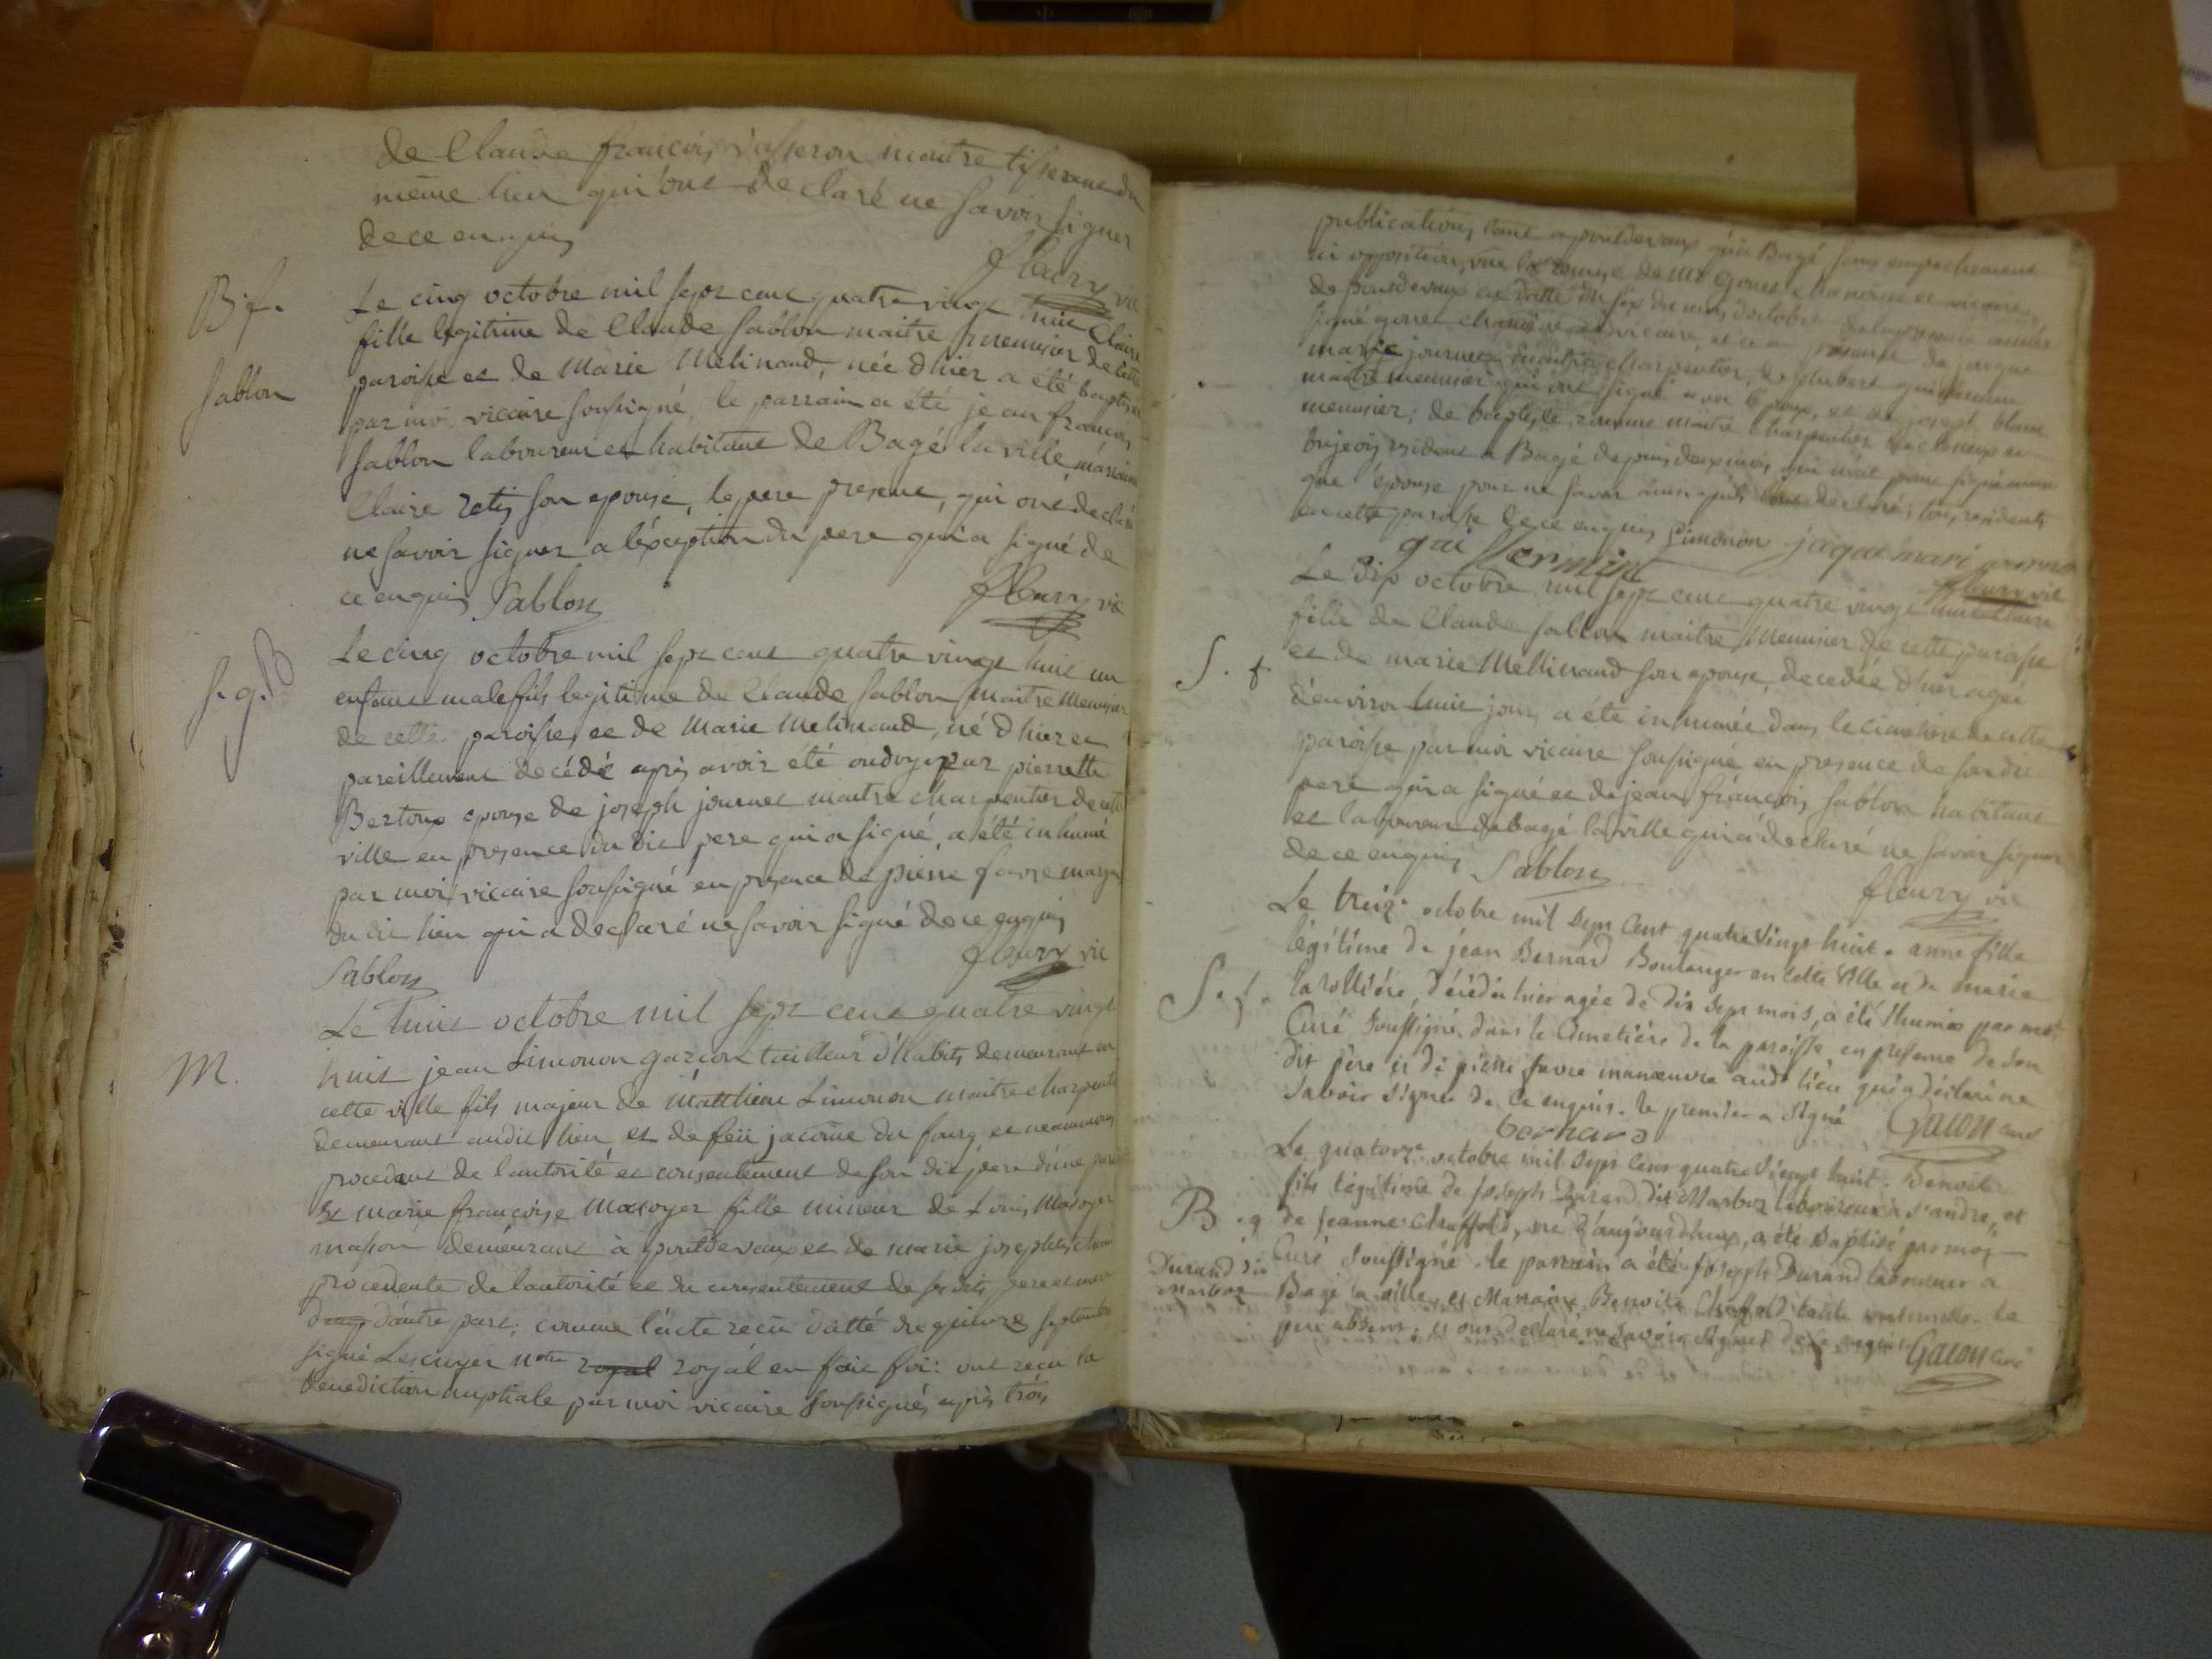 de Claude françois vasseron maitre tisserant du
même lieu qui ont declaré ne savoir signer
de ce enquis
fleury vic
B. f.
Sablon
Le cinq octobre mil sept cent quatre vingt huit Claire
fille legitime de Claude Sablon maitre menuisier de cette
paroisse et de Marie Melinand, née d'hier a été baptisée
par moi vicaire soussigné, le parrain a été jean françois
Sablon laboureur et habitant de Bagé la ville, marraine
Claire son epouse, le pere present, qui ont declaré
ne savoir signer a l'éxception du pere qui a signé de
ce enquis Sablon
fleury vic
S. g. B
Le cinq octobre mil sept cent quatre vingt huit un
enfant male fils legitime de Claude Sablon maitre menuisier
de cette paroisse et de Marie Melinand, né d'hier et
pareillement decédé après avoir été ondoyé par pierrette
Bertoux epouse de joseph journet maitre charpentier de cette
ville en presence du dit pere qui a signé, a été inhumé
par moi vicaire soussigné en presence de pierre favre
du dit lieu qui a declaré ne savoir signé de ce enquis
Sablon
fleury vic
M.
Le huit octobre mil sept cent quatre vingt
huit jean Limonon garçon tailleur d'habits demeurant en
cette ville fils majeur de Matthieu Limonon maitre charpentier
demeurant audit lieu, et de feü jacome du fourg et neanmoins
procedant de l'autorité et consentement de son dit pere d'une part
Et marie françoise Mazoyer fille mineur de Louis Mazoyer
masson demeurant à pontdevaux et de marie josephte
procedente de l'autorité et du consentement de ses dits pere et mere
d'autre part; comme l'acte recu datté du quinze septembre
signé Lescuyer notre royal royal en fait foi: ont reçu la
benediction nuptiale par moi vicaire soussigné, après trois
publications tant a pontdevaux qu'a Bagé sans empechement
ni opposition, vue la remise de Mr Gonet chanoine et vicaire
de pontdevaux en datte du six du mois d'octobre de la presente année
signé gonet chanoine et vicaire, et ce en presence de jacque
marie journet maitre charpentier, de hubert
maitre menuisier qui ont signé avec l'epoux, et de joseph blanc
menuisier, de baptiste maitre charpentier
residant a Bagé depuis deux mois qui n'ont point signé non
que l'épouse pour ne savoir ainsi qu'ils l'ont declaré; tous residents
en cette paroisse de ce enquis Limonon jaque mari journet
fleury vic
S. f.
Le dix octobre mil sept cent quatre vingt huit Claire
fille de Claude Sablon maitre menuisier de cette paroisse
et de marie Mellinand son epouse, decedée d'hier ageé
d'environ huit jours a été inhumée dans le cimetiere de cette
paroisse par moi vicaire soussigné en presence de son dit
pere qui a signé et de jean françois Sablon habitant
et laboureur de bagé la ville qui a declaré ne savoir signer
de ce enquis Sablon
fleury vic
S. f.
Le treize octobre mil Sept Cent quatre Vingt huit. anne fille
légitime de jean Bernard Boulanger en cette Ville et de marie
larolliére, décédée hier agée de dix Sept mois, a été Ihumée par moi
Curé Soussigné dans le Cimetiére de la paroisse, en presence de Son
dit père et de pierre favre manœuvre audt lieu qui a déclaré ne
Savoir Signer de Ce enquis. le premier a Signé
bernard
Gacon curé
B. g
Durand dit
marboz
Le quatorze octobre mil Sept Cent quatre Vingt huit. Benoit
fils légitime de Joseph Durand dit Marboz laboureur a St andré, et
de Jeanne Chuffold, né d'aujourdhuy, a été Baptisé par moy
Curé Soussigné. le parrain a été Joseph Durand laboureur a
Bagé la ville, et Marraine Benoite Chuffold tante maternelle. le
pere absent. et ont declaré ne Savoir Signer de ce enquis
Gacon curé